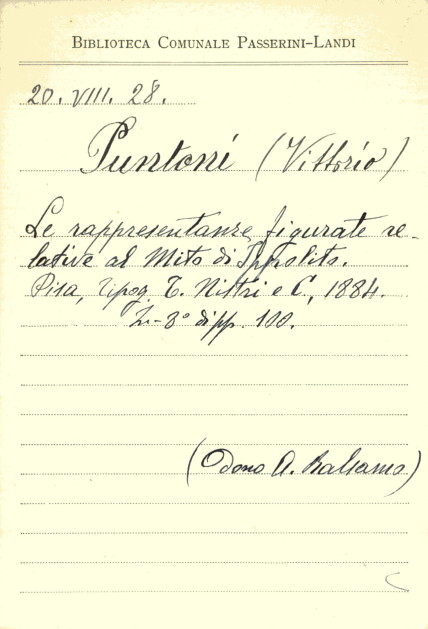 BIBLIOTECA COMUNALE PASSERINI-LANDI
20. VIII. 28.
Puntoni (Vittorio)
Le rappresentanze figurate re-
lative al Mito di Ippolito.
Pisa, Tipog. T. Nistri e C., 1884.
In-8° di pp. 100.
(Dono A. Balsamo)